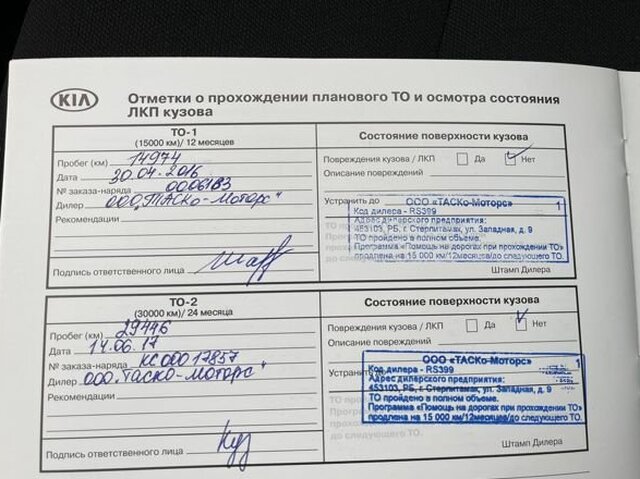 KIA
Отметки о прохождении планового ТО и осмотра состояния
ЛКП кузова
ТО-1
(15000 км)/ 12 месяцев
Пробег (км) 14974
Дата 30.04.2016
№ заказа-наряда 0006183
Дилер ООО "ТАСКо-Моторс"
Рекомендации
Подпись ответственного лица
Состояние поверхности кузова
Повреждения кузова / ЛКП Да Нет
Описание повреждений
Устранить до
ООО «ТАСКо-Моторс» 1
Код дилера - RS399
Адрес дилерского предприятия:
453103, РБ, г. Стерлитамак, ул. Западная, д. 9
ТО пройдено в полном объеме.
Программа «Помощь на дорогах при прохождении ТО»
продлена на 15 000 км/12месяцев/до следующего ТО.
Штамп Дилера
ТО-2
(30000 км)/ 24 месяца
Пробег (км) 29446
Дата 14.06.17
№ заказа-наряда КС00017857
Дилер ООО "ТАСКо-Моторс"
Рекомендации
Подпись ответственного лица
Состояние поверхности кузова
Повреждения кузова / ЛКП Да Нет
Описание повреждений
Устранить
ООО «ТАСКо-Моторс» 1
Код дилера - RS399
Адрес дилерского предприятия:
453103, РБ, г. Стерлитамак, ул. Западная, д. 9
ТО пройдено в полном объеме.
Программа «Помощь на дорогах при прохождении ТО»
продлена на 15 000 км/12месяцев/до следующего ТО.
до следующего ТО.
Штамп Дилера